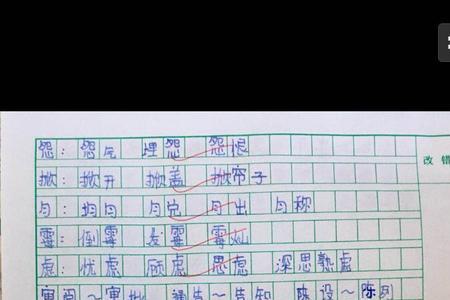 怨：怨气 埋怨 怨恨
掀：掀开 掀盖 掀帘子
匀：均匀 匀兑 匀出 匀称
改错
霉：倒霉 发霉 霉灿
虑：忧虑 顾虑 思虑 深思熟虑
审阅～审批 通告～告知 陈设～陈列